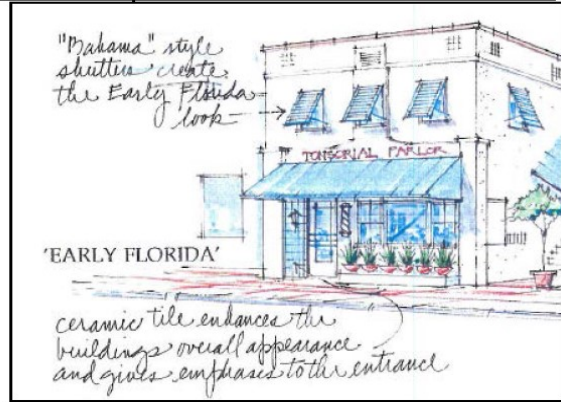 "Bahama" style
shutters create
the Early Florida
look
TONSORIAL PARLOR
'EARLY FLORIDA'
ceramic tile enhances the
buildings overall appearance
and gives emphasis to the entrance